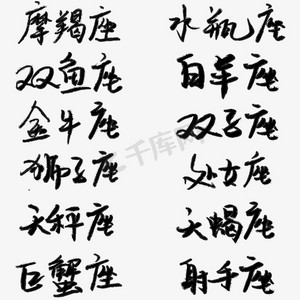 摩羯座 水瓶座
双鱼座 白羊座
金牛座 双子座
千库网
狮子座 处女座
天秤座 天蝎座
巨蟹座 射手座